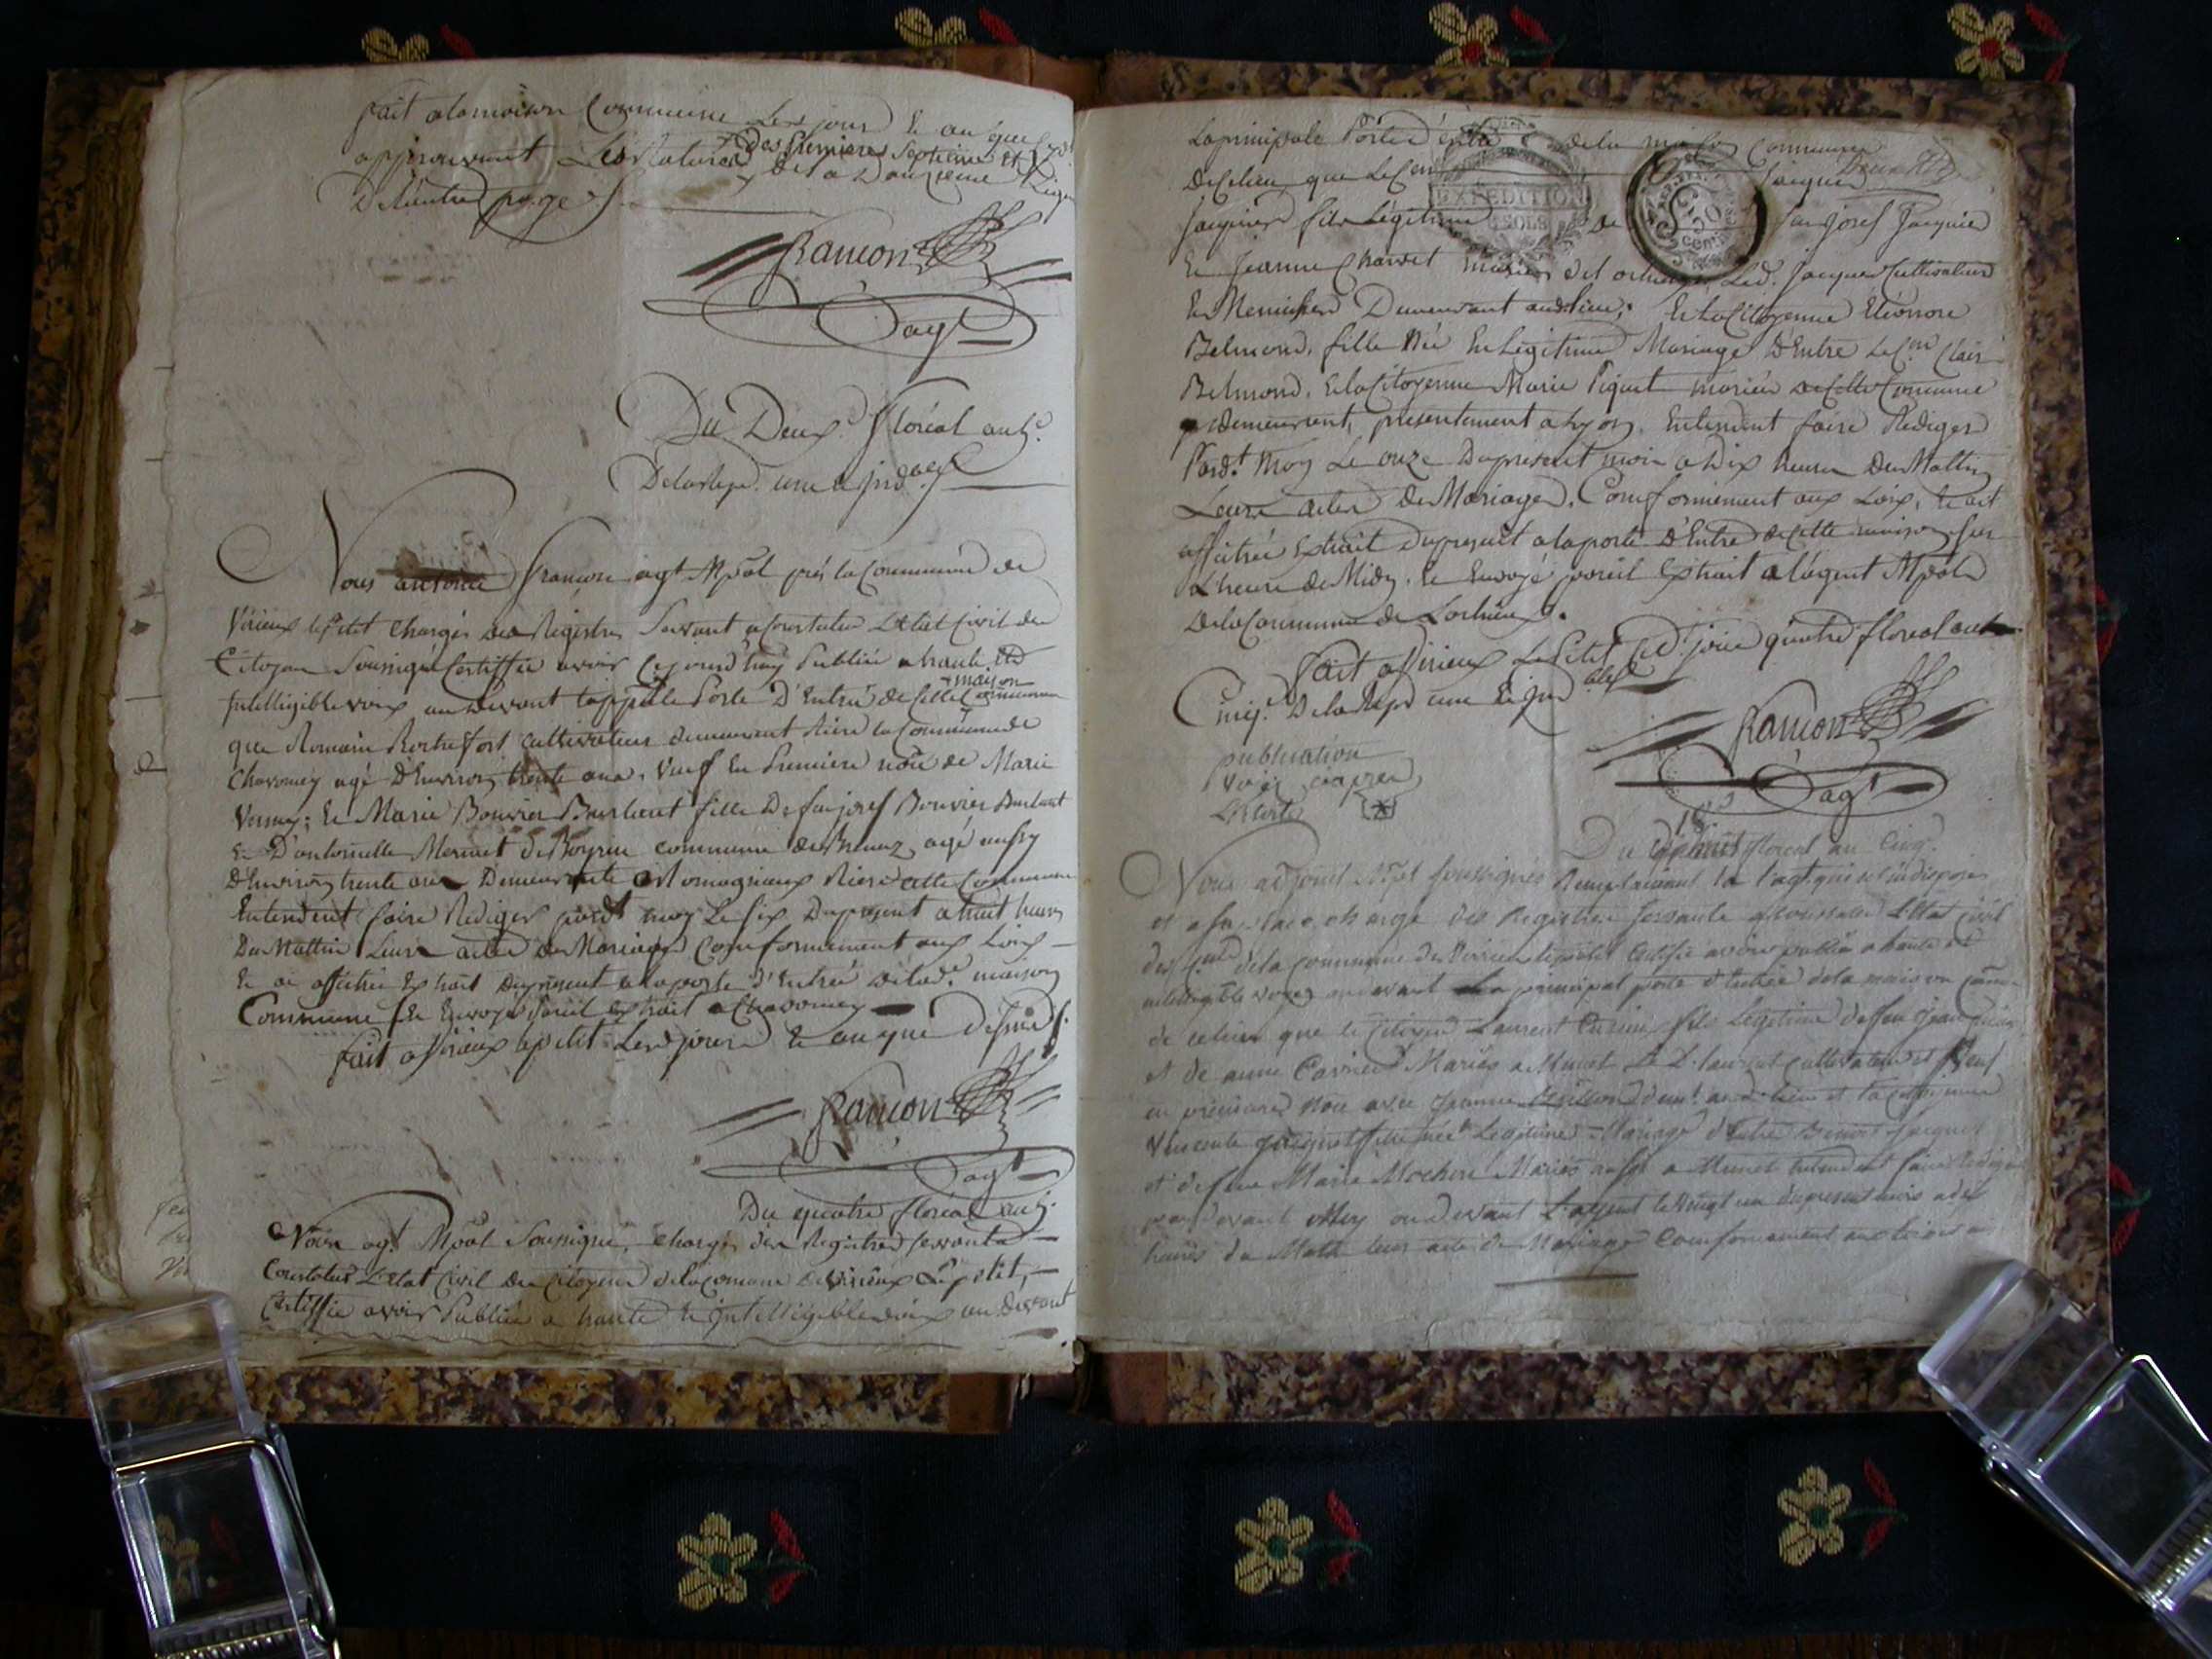 fait a la maison Commune Les jour & an que
approuvant Les Ratures des premiere Septieme et
De la Douzieme Ligne
De Lautre page
francon
agt
Du Deux floréal an 5e
De la Rep. une & ind.
Nous francon agt Mpal près la Commune de
Virieux le petit Chargé des Registres Servant a Constater L'état Civil des
Citoyens Soussigné Certiffie avoir Cejourd'huy Publiée a haute et
Intelligible voix au devant la pple Porte D'Entrée de cette maison Commune
que Romain Rochefort Cultivateur demeurant Riere la Commune de
Chavorney agé D'Environ trente ans, veuf En Premiere noce de Marie
& Marie Bouvier Burlicat fille De feu josef Bouvier
& D'antoinette Mermet De commune de agé aussy
D'Environ trente ans Demeurante a Romagnieux Riere cette Commune
Entendent faire Rediger pardt moy Le six Du present a huit heures
Du Mattin Leurs actes De Mariage Conformement aux Loix
& ai affichée Extrait Du present a la porte d'Entrée De lade. maison
Commune & Envoyé pareil Extrait a Chavorney
fait a Virieux le petit Les jours & an que dessus
francon
agt
Du quatre floréal an 5.
Nous agt Mpal Soussigné, Chargé des Registres servant a
Constater L'Etat Civil des Citoyens de la Comune de Virieux Le petit,
Certiffie avoir Publiée a haute & Intelligible voix au devant
La principale Porte d'entrée de la maison Commune
De ce lieu que Le Cen Jacques
EXPEDITION
SOLS
50
CENT
Jacquier fils Légitime de feu josef Jacquier
& Jeanne Charvet mariés Led. Jacques Cultivateur
& Menuisier Demeurant aud. lieu; Et La Citoyenne Eleonore
Belmond, fille Née En Légitime Mariage D'Entre Le Cen Clair
Belmond, & la Citoyenne Marie Piquet mariés de cette Commune
demeurent, presentement a Lyon, Entendent faire Rediger
Pardt Moy Le onze Du present mois a Dix heures Du Mattin
Leurs actes De Mariage, Conformement aux Loix, & ai
affichée Extrait Du present a la porte D'Entrée de cette maison sur
L'heure de Midy, & Envoyé pareil Extrait a L'agent Mpal
De la Commune de Lochieu
Fait a Virieux Le Petit Ced. jour quatre floreal an
Cinq. De la Rep une & ind
publication
voir cy apres
francon
agt
18
Du floreal an Cinq.
Nous adjoint Mpal soussignés Remplacant la l'agt. qui est indisposé
et a sa place chargé des Registres servants a Constater L'Etat civil
des de la commune de Virieu le petit Certifie avoir publiée a haute et
intelligible voix au devant La principal porte d'Entrée de la maison
de ce lieu que le Citoyen Laurent fils Legitime de feu Jean
et de anne Carrier Mariés a Munet Le D. laurent cultivateur et veuf
en premiere noce avec Jeanne demt. aud. lieu et la Citoyenne
fille née Legitime Mariage d'Entre Benoit
et de feue Marie Mochon Mariés aussi a Munet Entendent faire Rediger
par devant Moy ou devant L'agent le Vingt un du present mois a dix
heures du Matin leurs acte de Mariage Conformement aux loix et ai